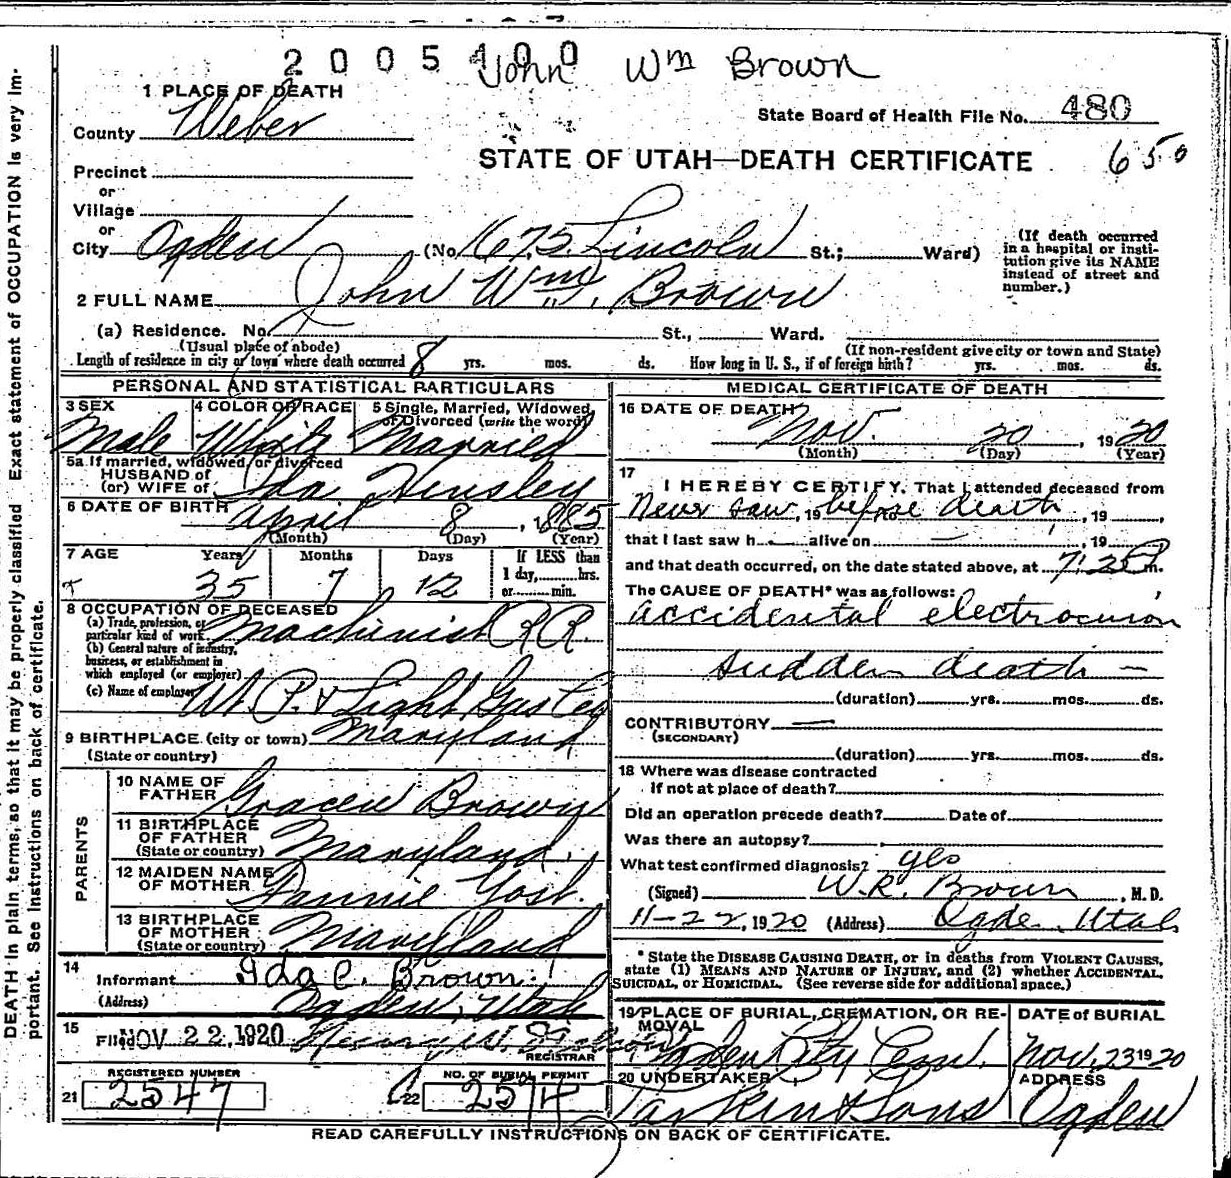 2005400
John Wm Brown
1 PLACE OF DEATH
County Weber
State Board of Health File No. 480
STATE OF UTAH—DEATH CERTIFICATE
650
Precinct
or
Village
or
City Ogden (No. 675 Lincoln St.; Ward)
(If death occurred in a hospital or institution give its NAME instead of street and number.)
2 FULL NAME John Wm. Brown
(a) Residence. No. St., Ward.
(Usual place of abode) (If non-resident give city or town and State)
Length of residence in city or town where death occurred 8 yrs. mos. ds. How long in U. S., if of foreign birth? yrs. mos. ds.
PERSONAL AND STATISTICAL PARTICULARS
3 SEX 4 COLOR OR RACE 5 Single, Married, Widowed or Divorced (write the word)
Male White Married
5a If married, widowed, or divorced
HUSBAND of
(or) WIFE of Ida Hensley
6 DATE OF BIRTH April 8, 1885
(Month) (Day) (Year)
7 AGE Years Months Days If LESS than
35 7 12 1 day, hrs.
or min.
8 OCCUPATION OF DECEASED
(a) Trade, profession, or particular kind of work Machinist RR.
(b) General nature of industry, business, or establishment in which employed (or employer)
(c) Name of employer Ut. P. & Light Gas Co
9 BIRTHPLACE (city or town) Maryland
(State or country)
PARENTS
10 NAME OF FATHER Brown
11 BIRTHPLACE OF FATHER
(State or country) Maryland.
12 MAIDEN NAME OF MOTHER Fannie Yost.
13 BIRTHPLACE OF MOTHER
(State or country) Maryland
14
Informant Ida C. Brown.
(Address) Ogden, Utah
15
Filed NOV 22, 1920
REGISTRAR
REGISTERED NUMBER
21 2547
NO. OF BURIAL PERMIT
22 2574
MEDICAL CERTIFICATE OF DEATH
16 DATE OF DEATH
Nov. 20, 1920
(Month) (Day) (Year)
17
I HEREBY CERTIFY, That I attended deceased from
Never saw, 19 before death, 19
that I last saw h alive on — , 19
and that death occurred, on the date stated above, at m.
The CAUSE OF DEATH* was as follows:
accidental electrocution
sudden death —
(duration) yrs. mos. ds.
CONTRIBUTORY —
(SECONDARY)
(duration) yrs. mos. ds.
18 Where was disease contracted
if not at place of death?
Did an operation precede death? Date of
Was there an autopsy?
What test confirmed diagnosis? yes
(Signed) W.R. Brown, M.D.
11-22, 1920 (Address) Ogden Utah
* State the DISEASE CAUSING DEATH, or in deaths from VIOLENT CAUSES,
state (1) MEANS AND NATURE OF INJURY, and (2) whether ACCIDENTAL,
SUICIDAL, or HOMICIDAL. (See reverse side for additional space.)
19 PLACE OF BURIAL, CREMATION, OR REMOVAL DATE of BURIAL
Ogden City Cem. Nov. 23 1920
20 UNDERTAKER ADDRESS
Larkin & Sons Ogden
READ CAREFULLY INSTRUCTIONS ON BACK OF CERTIFICATE.
DEATH in plain terms, so that it may be properly classified Exact statement of OCCUPATION is very im-
portant. See Instructions on back of certificate.